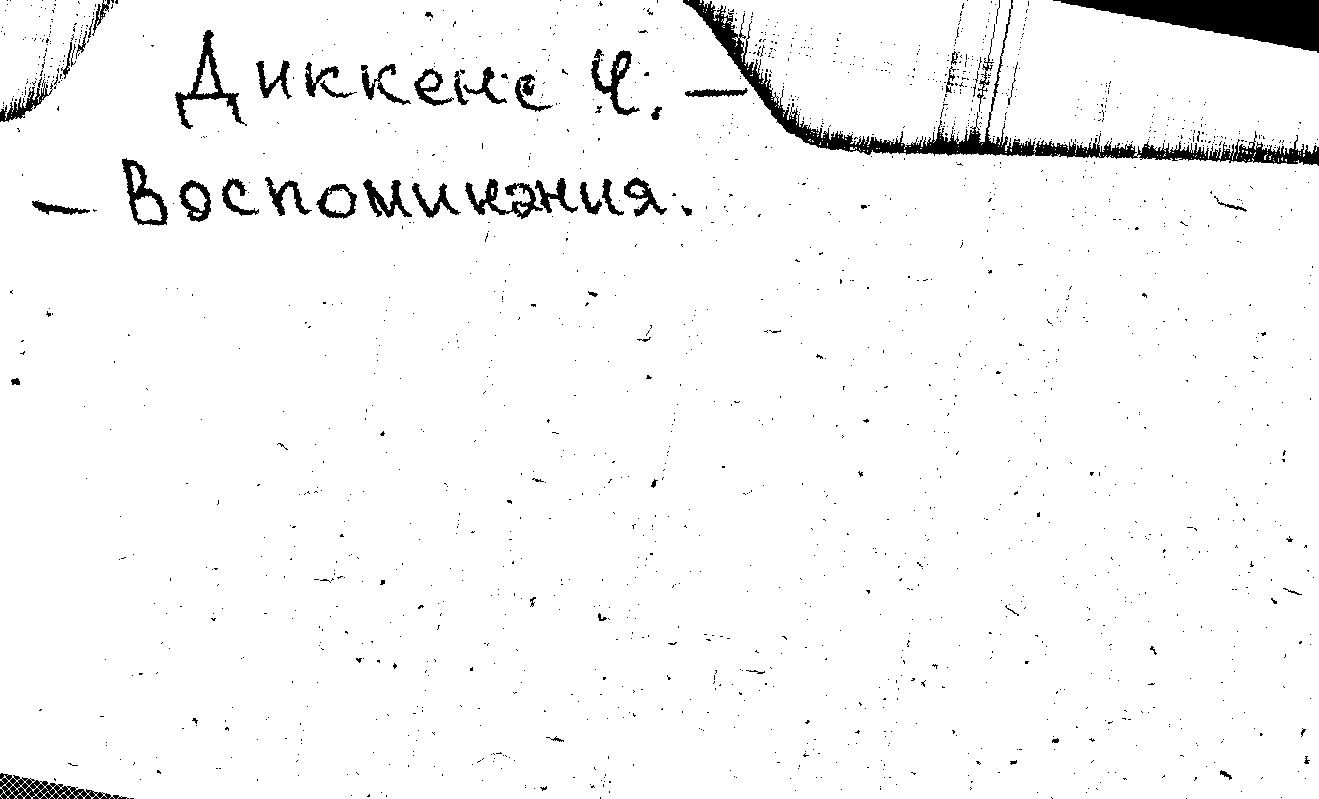 Диккенс Ч. –
– Воспоминания.